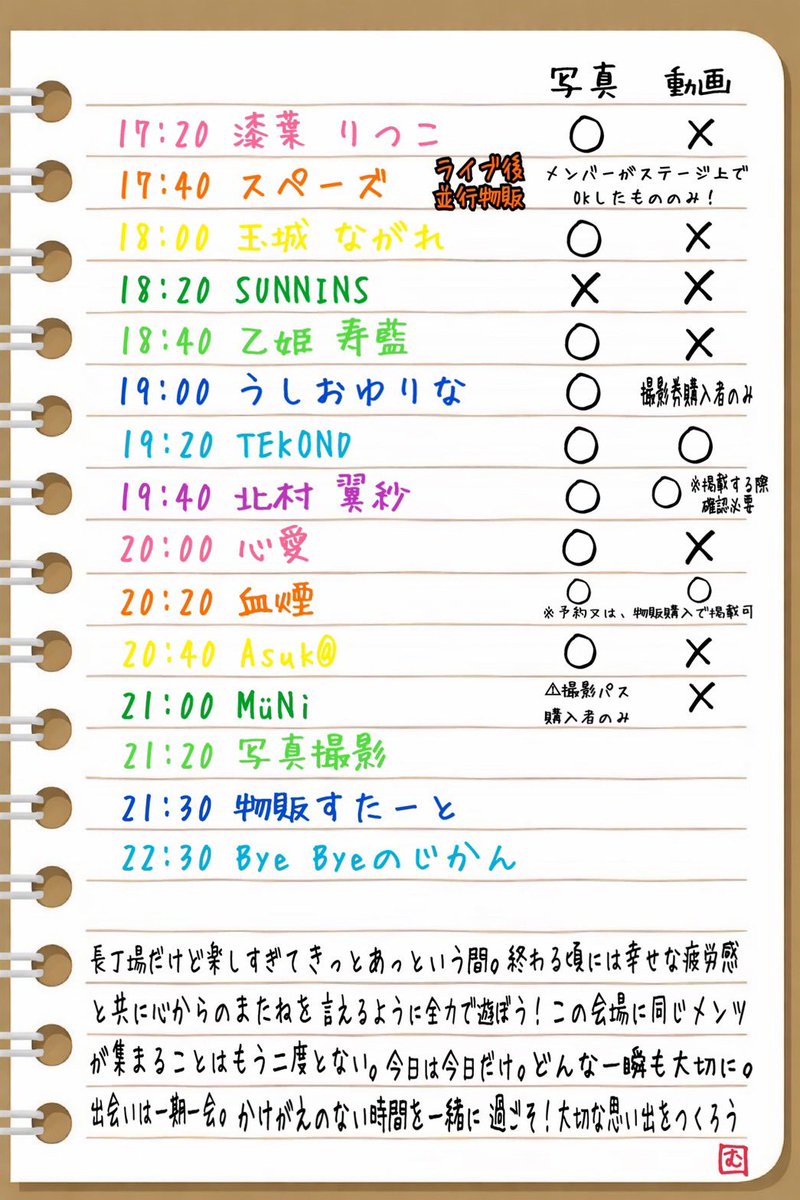 写真 動画
17:20 漆葉 りつこ ○ ×
17:40 スペーズ ライブ後 メンバーがステージ上で
並行物販 OKしたもののみ!
18:00 玉城 ながれ ○ ×
18:20 SUNNINS × ×
18:40 乙姫 寿藍 ○ ×
19:00 うしおゆりな ○ 撮影券購入者のみ
19:20 TEKOND ○ ○
19:40 北村 翼紗 ○ ○ ※掲載する際
確認必要
20:00 心愛 ○ ×
20:20 血煙 ○ ○
※予約又は、物販購入で掲載可
20:40 Asuk@ ○ ×
21:00 MüNi ⚠撮影パス ×
購入者のみ
21:20 写真撮影
21:30 物販すたーと
22:30 Bye Byeのじかん
長丁場だけど楽しすぎてきっとあっという間。終わる頃には幸せな疲労感
と共に心からのまたねを言えるように全力で遊ぼう!この会場に同じメンツ
が集まることはもう二度とない。今日は今日だけ。どんな一瞬も大切に。
出会いは一期一会。かけがえのない時間を一緒に過ごそ!大切な思い出をつくろう
む